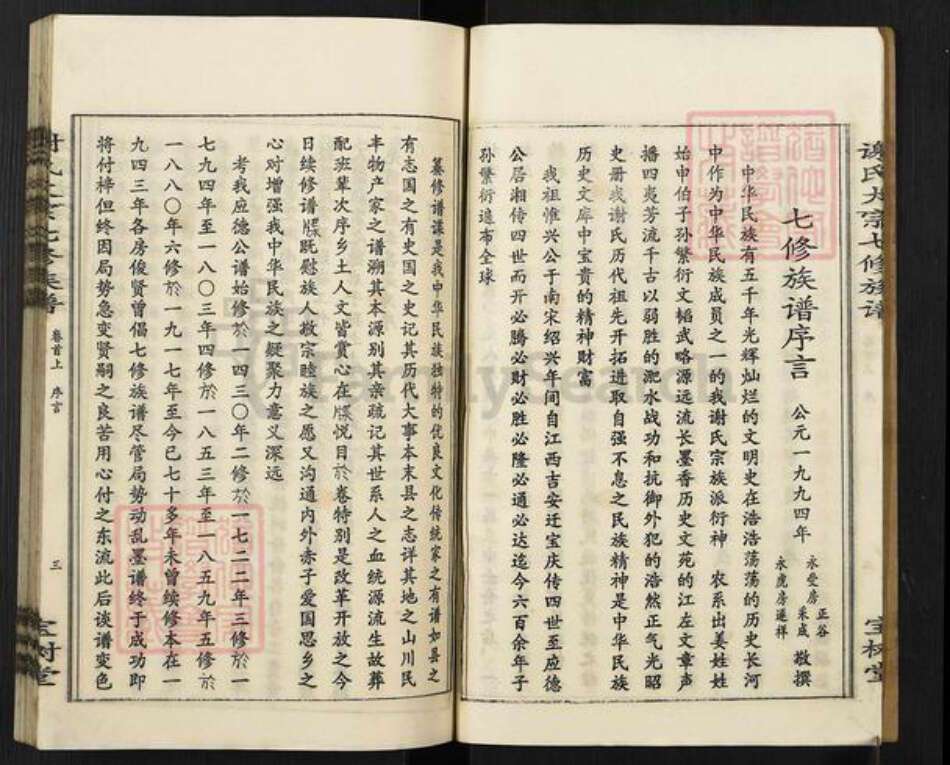 谢氏大宗七修族谱
宝树堂
七修族谱序言
公元一九九四年
永受房 正谷 采成
永虎房 遥祥
敬撰
中华民族有五千年光辉灿烂的文明史在浩浩荡荡的历史长河
中作为中华民族成员之一的我谢氏宗族派衍神 农系出姜姓姓
始申伯子孙繁衍文韬武略源远流长墨香历史文苑的江左文章声
播四夷芳流千古以弱胜的淝水战功和抗御外犯的浩然正气光昭
史册我谢氏历代祖先开拓进取自强不息之民族精神是中华民族
历史文库中宝贵的精神财富
我祖惟兴公于南宋绍兴年间自江西吉安迁宝庆传四世至应德
公居湘传四世而开必腾必财必胜必隆必通必达迄今六百余年子
孙繁衍遍布全球
纂修谱谍是我中华民族独特的优良文化传统家之有谱如县之
有志国之有史国之史记其历代大事本末县之志详其地之山川民
丰物产家之谱溯其本源别其亲疏记其世系人之血统源流生故葬
配班辈次序乡土人文皆赏心在牒悦目於卷特别是改革开放之今
日续修谱牒既慰族人敬宗睦族之愿又沟通内外赤子爱国思乡之
心对增强我中华民族之凝聚力意义深远
考我应德公谱始修於一四三〇年二修於一七二二年三修於一
七九四年至一八〇三年四修於一八五三年至一八五九年五修於
一八八〇年六修於一九一七年至今已七十多年未曾续修本在一
九四三年各房俊贤曾倡七修族谱尽管局势动乱墨谱终于成功即
将付梓但终因局势急变贤嗣之良苦用心付之东流此后谈谱变色
卷首上 序言
三
宝树堂
FamilySearch